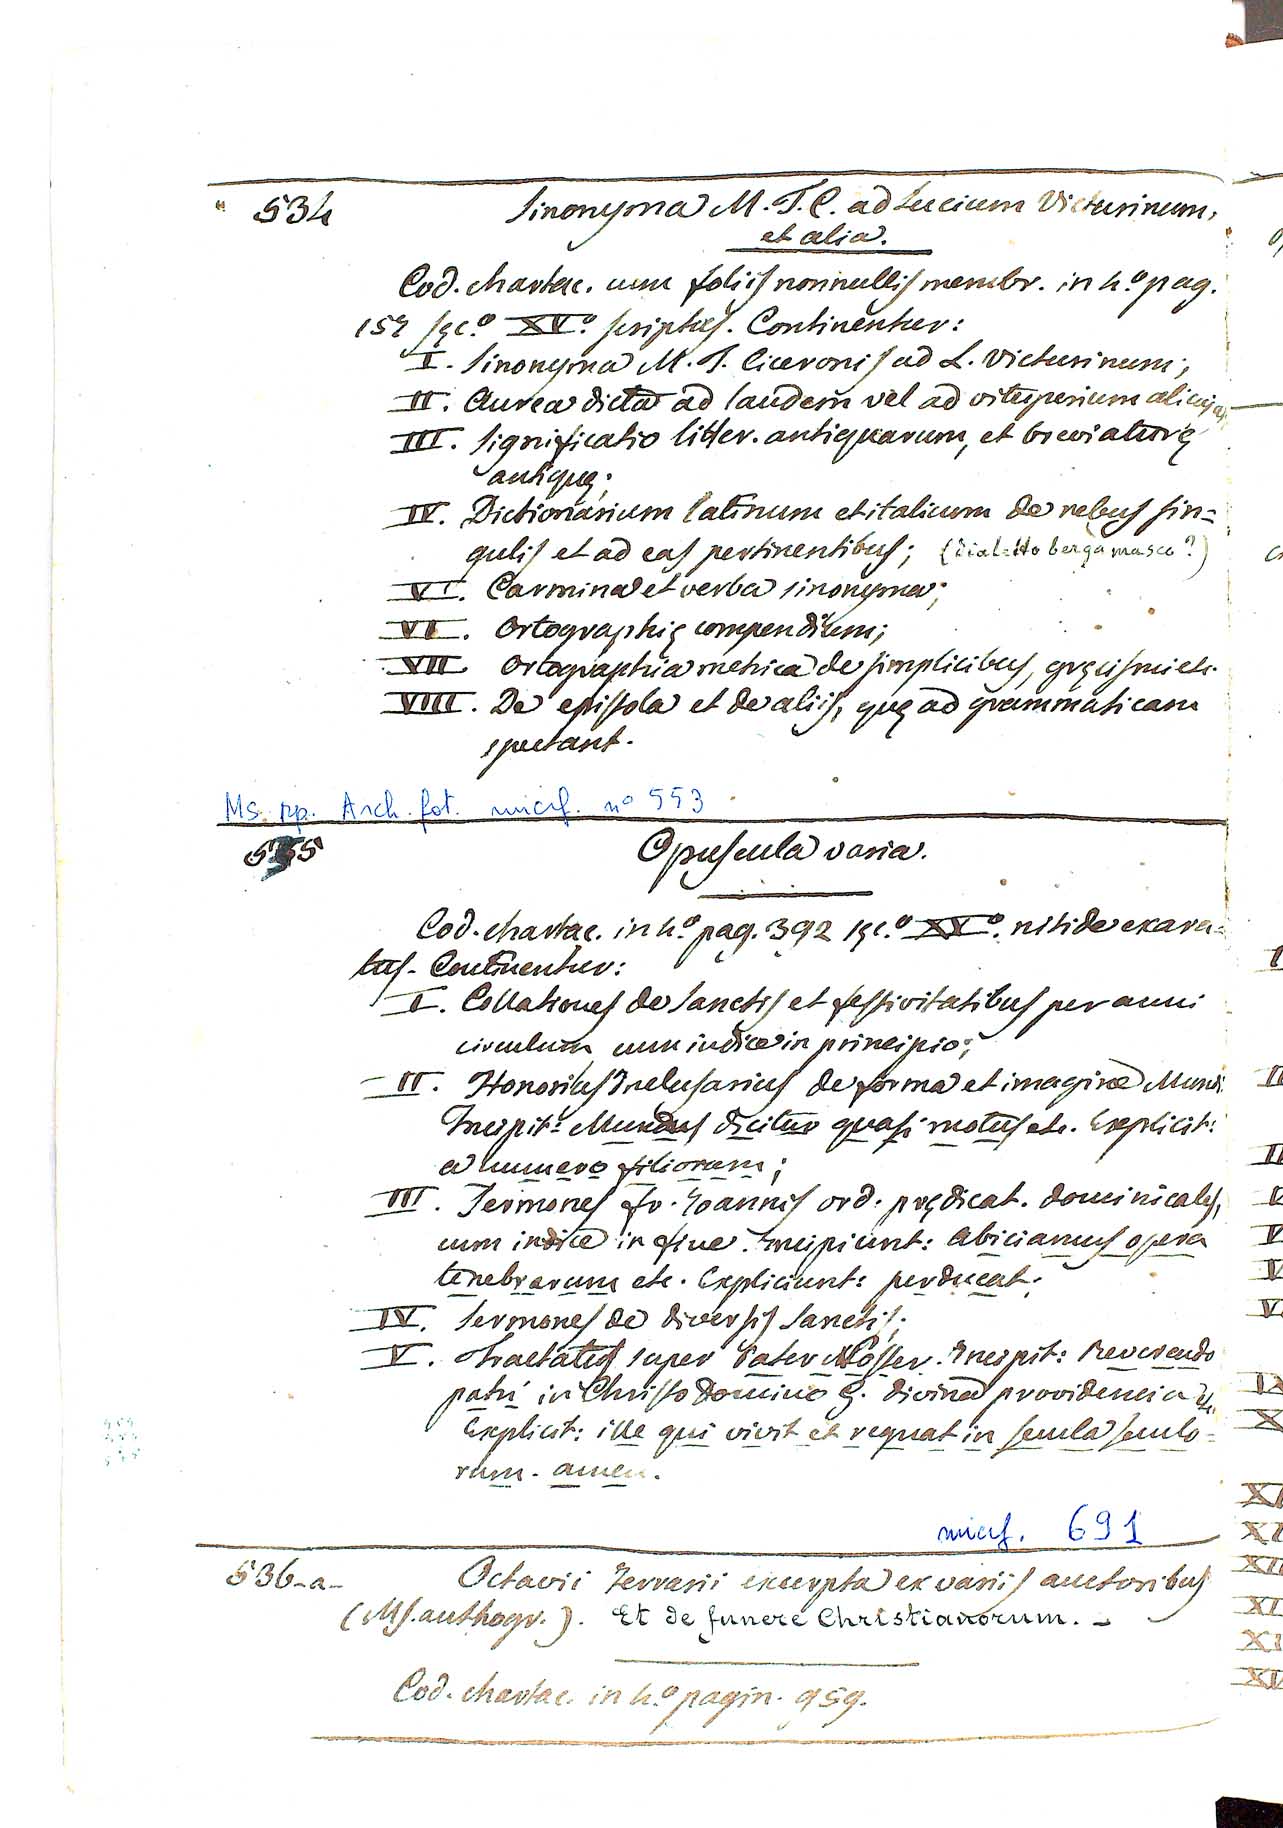 534 Sinonyma M. T. C. ad Lucium Victurinum,
et alia.
Cod. chartac. cum foliis nonnullis membr. in 4.º pag.
157 sęc.º XV.º scriptus. Continentur:
I. Sinonyma M. T. Ciceronis ad L. Victurinum;
II. Aurea dicta ad laudem vel ad vituperium alicujus
III. Significatio litter. antiquarum, et breviaturę
antiquę;
IV. Dictionarium latinum et italicum de rebus sin=
gulis et ad eas pertinentibus; (dialetto bergamasco?)
V. Carmina et verba sinonyma;
VI. Ortographię compendium;
VII. Ortographia metrica de simplicibus, gręcismi etc.
VIII. De epistola et de aliis, quę ad grammaticam
spectant.
Ms. rip. Arch. fot. micrf. nº 553
535 Opuscula varia.
Cod. chartac. in 4.º pag. 392 sęc.º XV.º nitide exara=
tus. Continentur:
I. Collationes de Sanctis et festivitatibus per anni
circulum, cum indice in principio;
II. Honorius Inclusarius de forma et imagine Mundi
Incipit: Mundus dicitur quasi motus etc. Explicit:
a numero filiorum;
III. Sermones fr. Joannis ord. prędicat. dominicales,
cum indice in fine. Incipiunt: Abiciamus opera
tenebrarum etc. Expliciunt: perducat;
IV. Sermones de diversis Sanctis;
V. Tractatus super Pater Noster. Incipit: Reverendo
patri in Christo Domino G. divina providencia etc
Explicit: ille qui vivit et regnat in secula seculo=
rum. amen.
micrf. 691
536-a- Octavii Ferrarii excerpta ex variis auctoribus
(Ms. authogr.). Et de funere Christianorum. -
Cod. chartac. in 4.º pagin. 959.